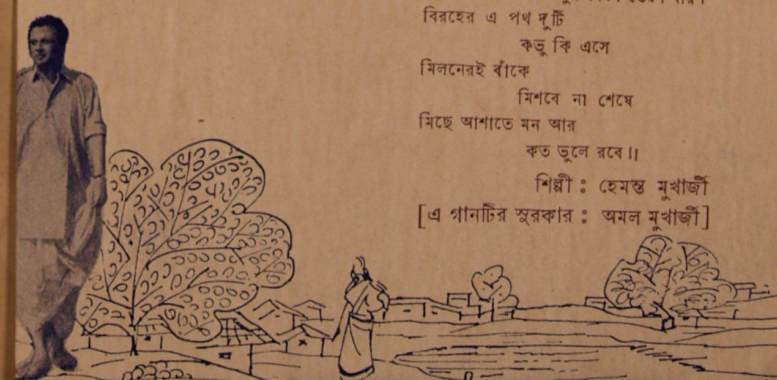 বিরহের এ পথ দুটি
কভু কি এসে
মিলনেরই বাঁকে
মিশবে না শেষে
মিছে আশাতে মন আর
কত ভুলে রবে॥
শিল্পী : হেমন্ত মুখার্জী
[এ গানটির সুরকার : অমল মুখার্জী]